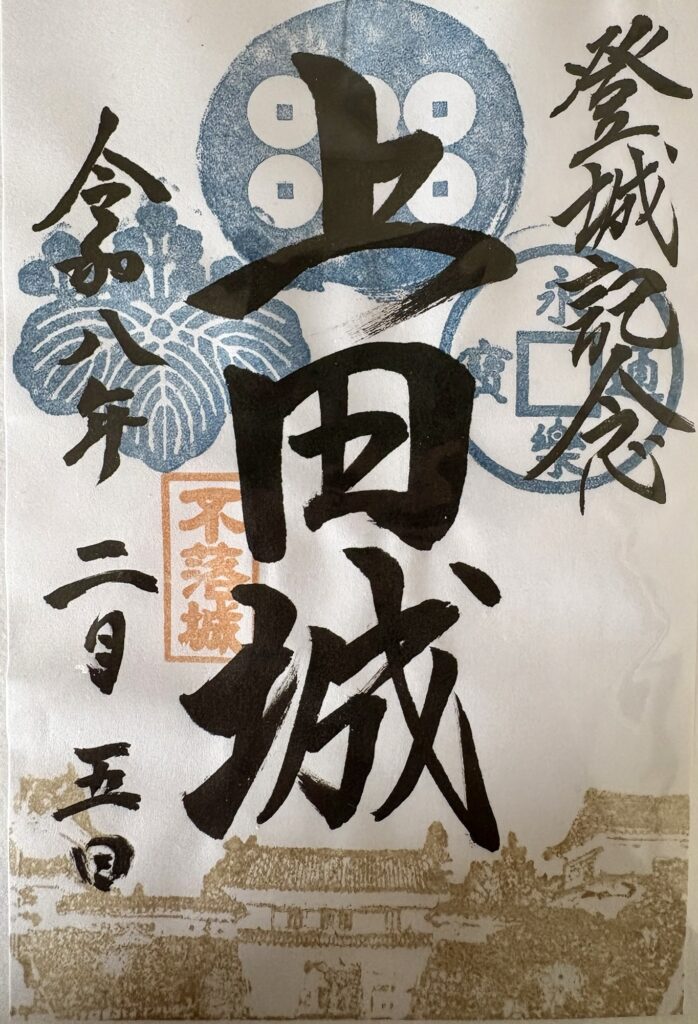 登城記念
永樂通寶
上田城
不落城
令和八年
二月
五日